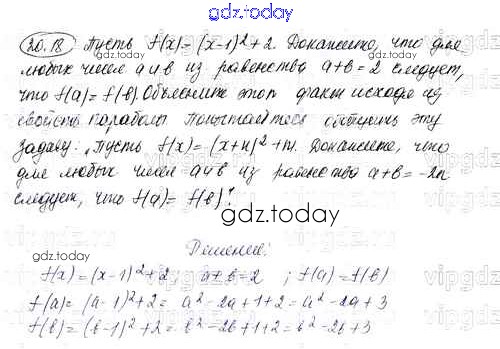 gdz.today
20.18 Пусть f(x) = (x-1)²+2. Докажите, что для
любых чисел a и b из равенства a+b=2 следует,
что f(a)=f(b). Объясните этот факт исходя из
свойств параболы попытайтесь обобщить эту
задачу: „Пусть f(x)=(x+n)²+m. Докажите, что
для любых чисел a и b из равенства a+b=-2n
следует, что f(a)=f(b)!
gdz.today
Решение:
f(x)=(x-1)²+2, a+b=2 ; f(a)=f(b)
f(a)=(a-1)²+2= a²-2a+1+2=a²-2a+3
f(b)=(b-1)²+2=b²-2b+1+2=b²-2b+3
gdz.today